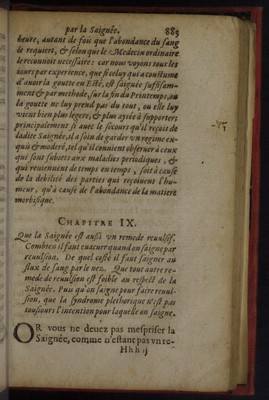 par la Saignée. 885
heure, autant de fois que l'abondance du sang
le requiert, & selon que le Medecin ordinaire
le reconnoit necessaire : car nous voyons tous les
iours par experience, que si celuy qui a coustume
d'auoir la goutte en Esté, est saignée suffisam-
ment & par methode, sur la fin du Printemps, ou
la goutte ne luy prend pas du tout, ou elle luy
vient bien plus legere, & plus aysée à supporter:
principalement si auec le secours qu'il reçoit de
ladite Saignée, il a soin de garder vn regime ex-
quis & moderé, tel qu'il conuient obseruer à ceux
que sont subiets aux maladies periodiques, &
qui reuiennent de temps en temps, soit à cause
de la debilité des parties qui reçoiuent l'hu-
meur, qu'à cause de l'abondance de la matiere
morbifique.
CHAPITRE IX.
Que la Saignée est aussi vn remede reuulsif.
Combien il faut euacuer quand on saigne par
reuulsion. De quel costé il faut saigner au
flux de sang par le nez. Que tout autre re-
mede de reuulsion est foible au respect de la
Saignée. Puis qu'on saigne pour faire reuul-
sion, que la syndrome plethorique n'est pas
tousiours l'intention pour laquelle on saigne.
OR vous ne deuez pas mespriser la
Saignée, comme n'estant pas vn re-
Hhh ij